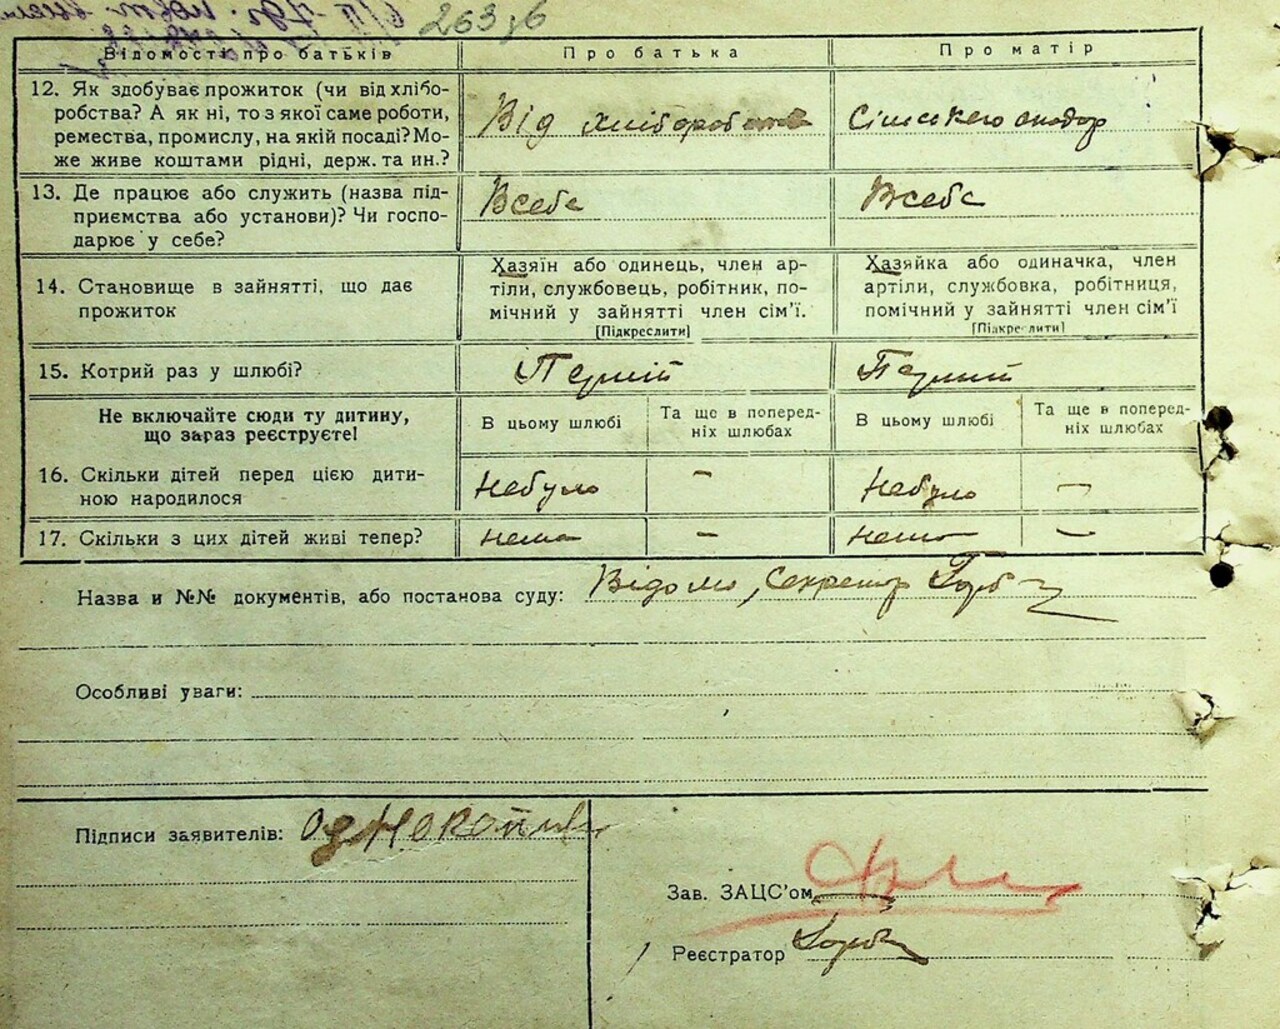 263 зб
Відомості про батьків Про батька Про матір
12. Як здобуває прожиток (чи від хлібо-
робства? А як ні, то з якої саме роботи,
ремества, промислу, на якій посаді? Мо-
же живе коштами рідні, держ. та ин.?
Від хлібороб
Сільського
13. Де працює або служить (назва під-
приємства або установи)? Чи госпо-
дарює у себе?
Всебе
Всебе
14. Становище в зайнятті, що дає
прожиток
Хазяїн або одинець, член ар-
тіли, службовець, робітник, по-
мічний у зайнятті член сім'ї.
[Підкреслити]
Хазяйка або одиначка, член
артіли, службовка, робітниця,
помічний у зайнятті член сім'ї
[Підкреслити]
15. Котрий раз у шлюбі?
Перший
Перший
Не включайте сюди ту дитину,
що зараз реєструєте!
В цьому шлюбі
Та ще в поперед-
ніх шлюбах
В цьому шлюбі
Та ще в поперед-
ніх шлюбах
16. Скільки дітей перед цією дити-
ною народилося
Небуло – Небуло –
17. Скільки з цих дітей живі тепер?
нема – нема –
Назва и №№ документів, або постанова суду: Відомо, Секретар
Особливі уваги:
Підписи заявителів:
Зав. ЗАЦС'ом
Реєстратор